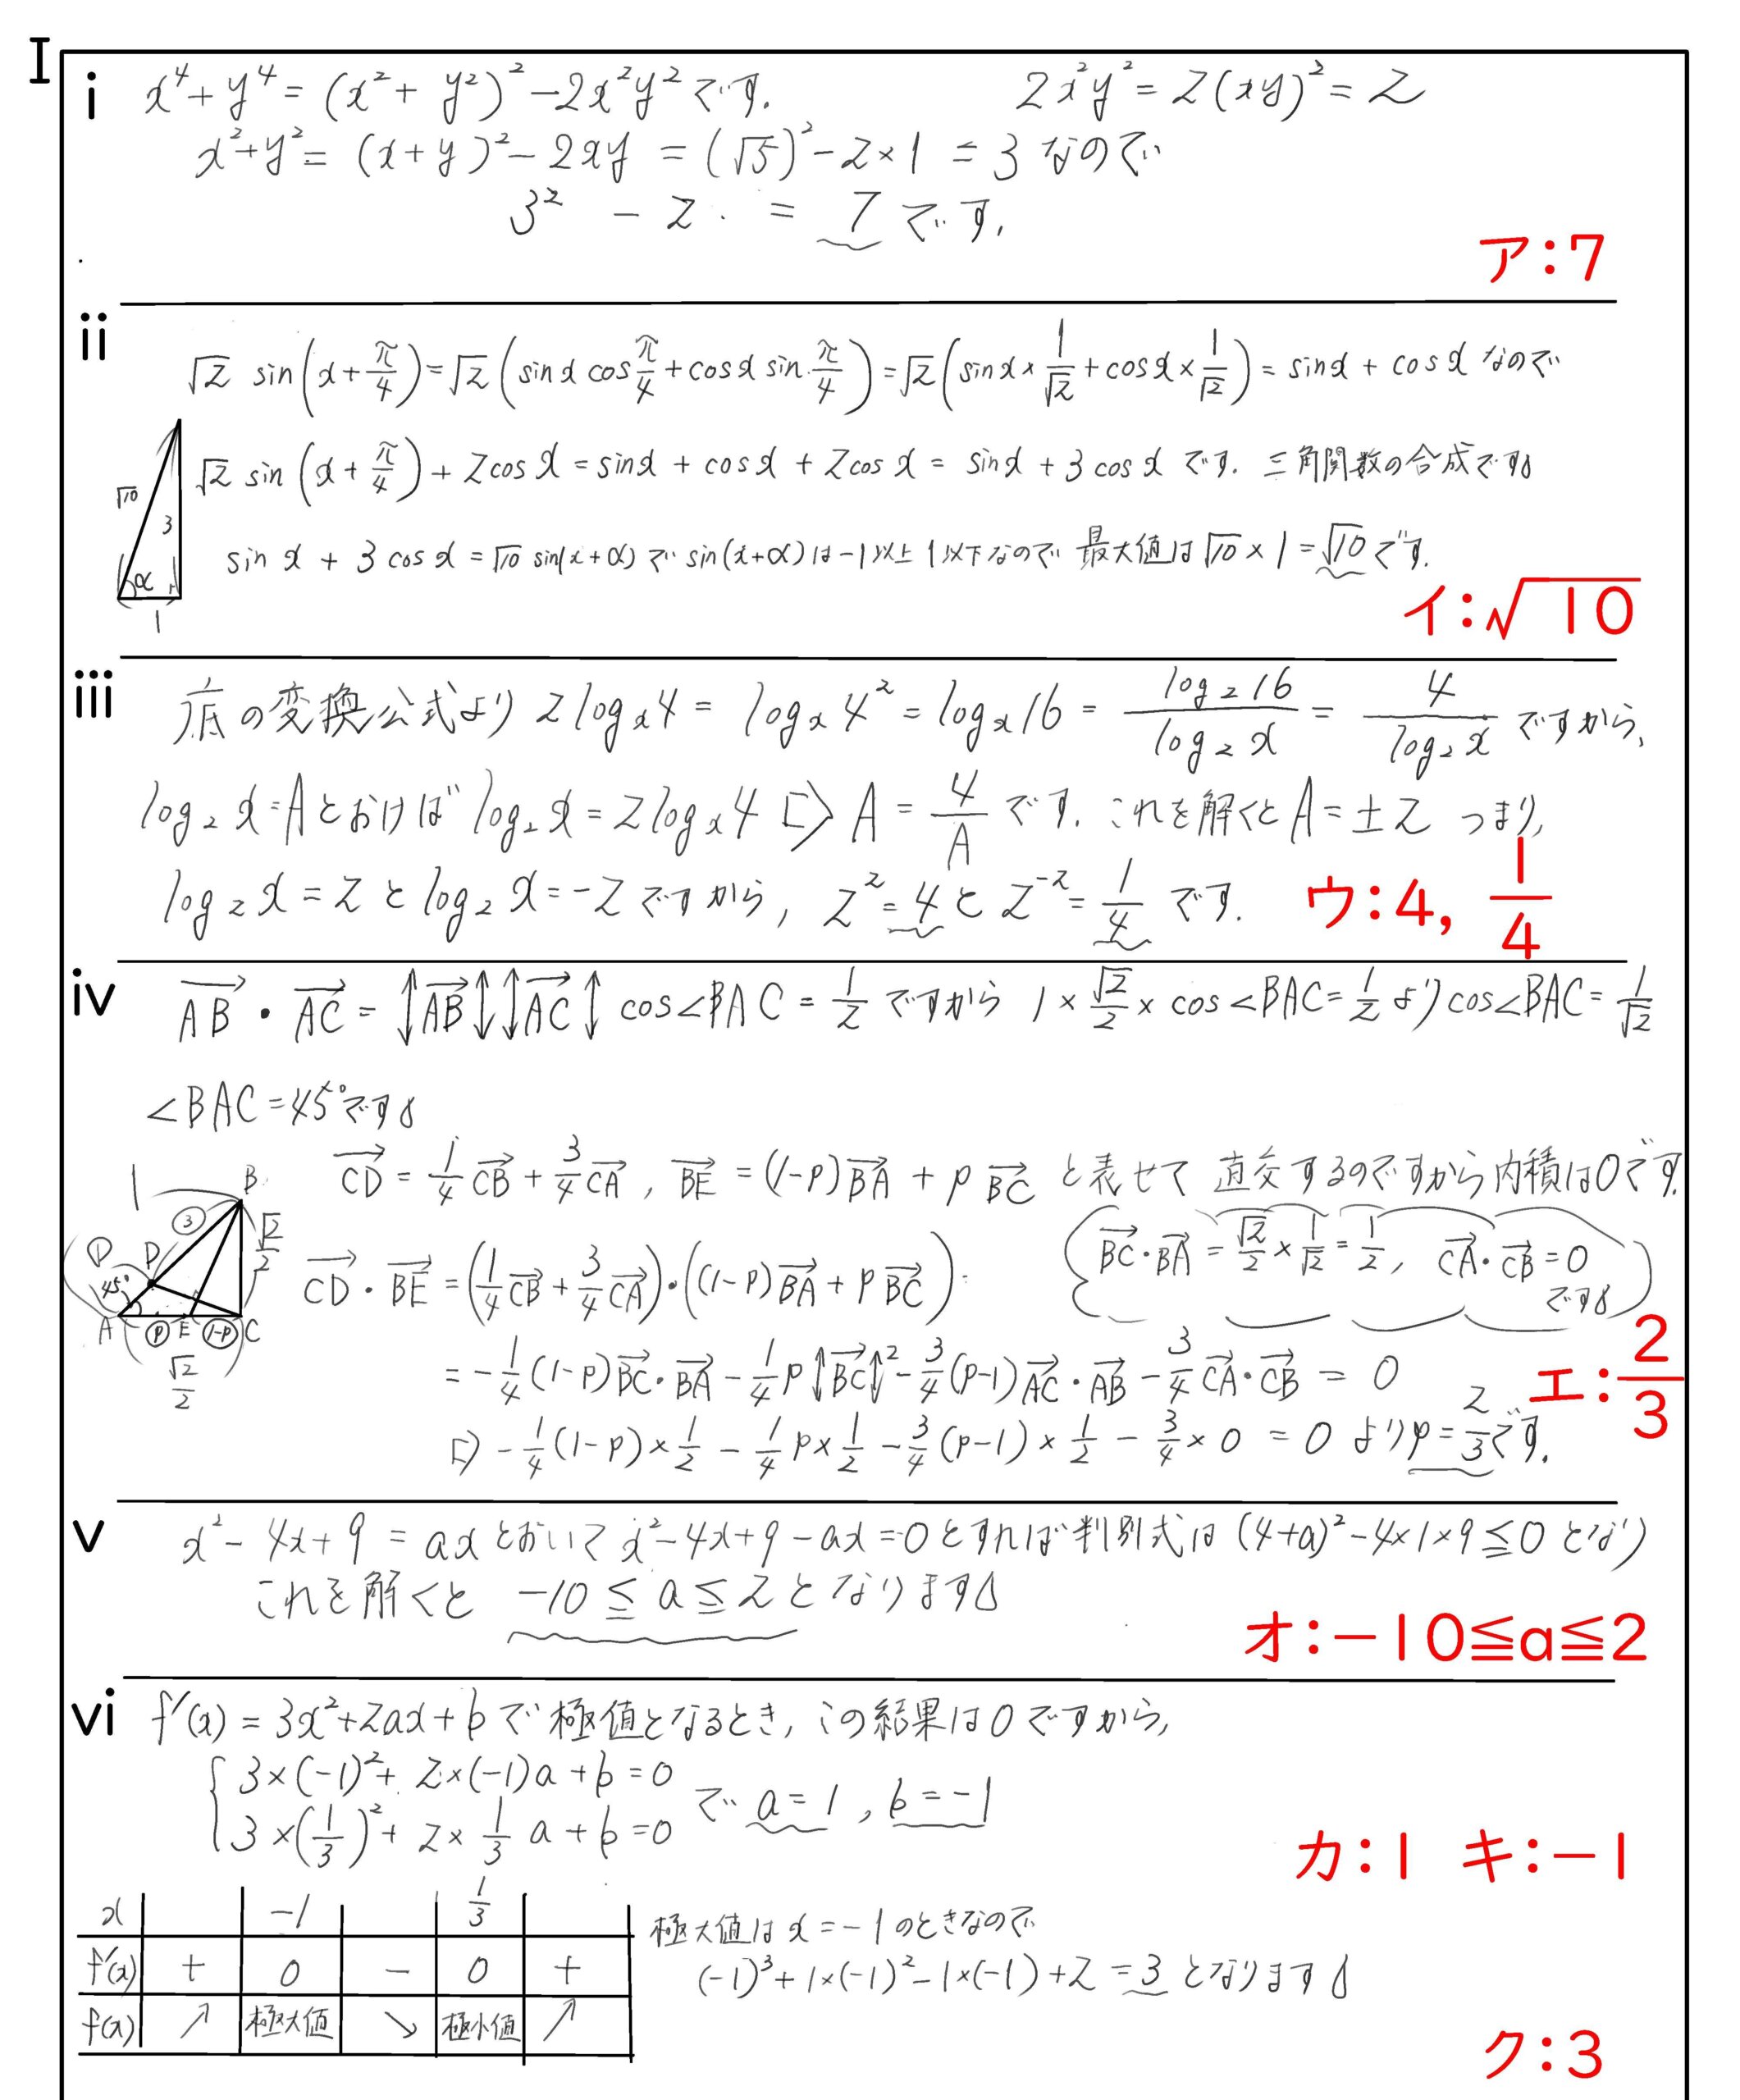 I
i x⁴+y⁴=(x²+y²)²-2x²y²です. 2x²y²=2(xy)²=2
x²+y²=(x+y)²-2xy=(√5)²-2×1=3なので
3²-2.=7です.
ア:7
ii √2 sin(x+π/4)=√2(sinx cosπ/4+cosx sinπ/4)=√2(sinx×1/√2+cosx×1/√2)=sinx+cosxなので
√2 sin(x+π/4)+2cosx=sinx+cosx+2cosx=sinx+3cosxです.三角関数の合成です。
sinx+3cosx=√10 sin(x+α)でsin(x+α)は-1以上1以下なので最大値は√10×1=√10です.
√10
3
α
1
イ:√10
iii 底の変換公式より2logₓ4=logₓ4²=logₓ16=log₂16/log₂x=4/log₂xですから,
log₂x=Aとおけばlog₂x=2logₓ4⇨A=4/Aです.これを解くとA=±2つまり,
log₂x=2とlog₂x=-2ですから,2²=4と2⁻²=1/4です.
ウ:4, 1/4
iv AB→・AC→=|AB→||AC→|cos∠BAC=1/2ですから1×√2/2×cos∠BAC=1/2よりcos∠BAC=1/√2
∠BAC=45°です。
CD→=1/4CB→+3/4CA→, BE→=(1-p)BA→+pBC→と表せて直交するのですから内積は0です.
CD→・BE→=(1/4CB→+3/4CA→)・((1-p)BA→+pBC→)
(BC→・BA→=√2/2×1/√2=1/2, CA→・CB→=0
です。)
=-1/4(1-p)BC→・BA→-1/4p|BC→|²-3/4(p-1)AC→・AB→-3/4CA→・CB→=0
⇨-1/4(1-p)×1/2-1/4p×1/2-3/4(p-1)×1/2-3/4×0=0よりp=2/3です.
1
B
③
√2/2
①
D
45°
A
ⓟ
E
(1-p)
C
√2/2
エ:2/3
v x²-4x+9=axとおいてx²-4x+9-ax=0とすれば判別式は(4+a)²-4×1×9≦0となり
これを解くと-10≦a≦2となります。
オ:-10≦a≦2
vi f'(x)=3x²+2ax+bで極値となるとき,この結果は0ですから,
{3×(-1)²+2×(-1)a+b=0
{3×(1/3)²+2×1/3a+b=0
でa=1, b=-1
カ:1 キ:-1
x -1 1/3
f'(x) + 0 - 0 +
f(x) ↗ 極大値 ↘ 極小値 ↗
極大値はx=-1のときなので
(-1)³+1×(-1)²-1×(-1)+2=3となります。
ク:3